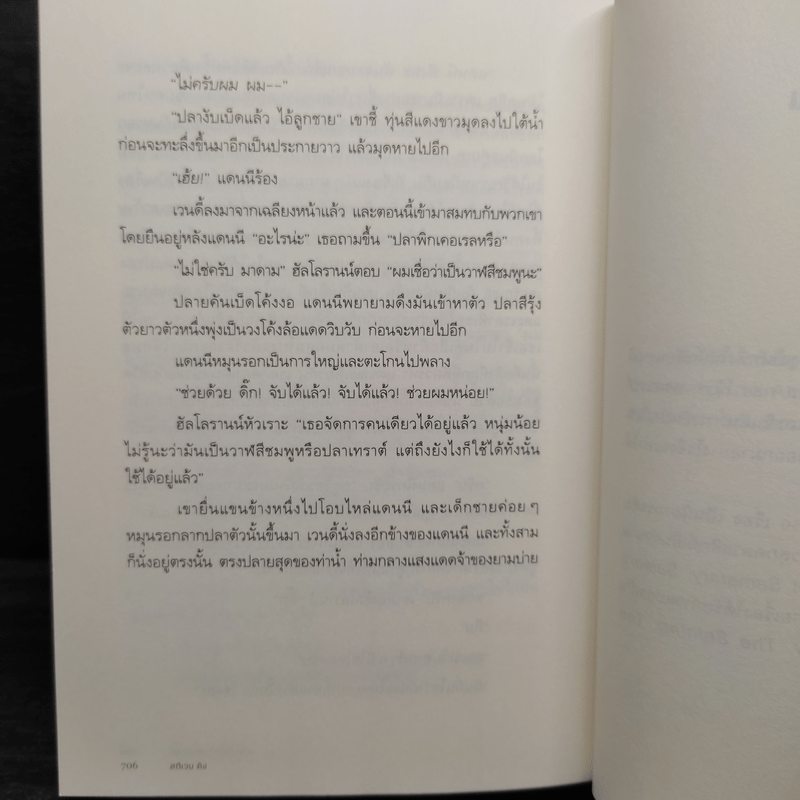 “ไม่ครับผม ผม--”
“ปลางับเบ็ดแล้ว ไอ้ลูกชาย” เขาชี้ ทุ่นสีแดงขาวมุดลงไปใต้น้ำ
ก่อนจะทะลึ่งขึ้นมาอีกเป็นประกายวาว แล้วมุดหายไปอีก
“เฮ้ย!” แดนนีร้อง
เวนดี้ลงมาจากเฉลียงหน้าแล้ว และตอนนี้เข้ามาสมทบกับพวกเขา
โดยยืนอยู่หลังแดนนี “อะไรน่ะ” เธอถามขึ้น “ปลาพิกเคอเรลหรือ”
“ไม่ใช่ครับ มาดาม” ฮัลโลรานน์ตอบ “ผมเชื่อว่าเป็นวาฬสีชมพูนะ”
ปลายคันเบ็ดโค้งงอ แดนนีพยายามดึงมันเข้าหาตัว ปลาสีรุ้ง
ตัวยาวตัวหนึ่งพุ่งเป็นวงโค้งล้อแดดวิบวับ ก่อนจะหายไปอีก
แดนนีหมุนรอกเป็นการใหญ่และตะโกนไปพลาง
“ช่วยด้วย ดิ๊ก! จับได้แล้ว! จับได้แล้ว! ช่วยผมหน่อย!”
ฮัลโลรานน์หัวเราะ “เธอจัดการคนเดียวได้อยู่แล้ว หนุ่มน้อย
ไม่รู้นะว่ามันเป็นวาฬสีชมพูหรือปลาเทราต์ แต่ถึงยังไงก็ใช้ได้ทั้งนั้น
ใช้ได้อยู่แล้ว”
เขายื่นแขนข้างหนึ่งไปโอบไหล่แดนนี และเด็กชายค่อย ๆ
หมุนรอกลากปลาตัวนั้นขึ้นมา เวนดี้นั่งลงอีกข้างของแดนนี และทั้งสาม
ก็นั่งอยู่ตรงนั้น ตรงปลายสุดของท่าน้ำ ท่ามกลางแสงแดดจ้าของยามบ่าย
706 สตีเวน คิง